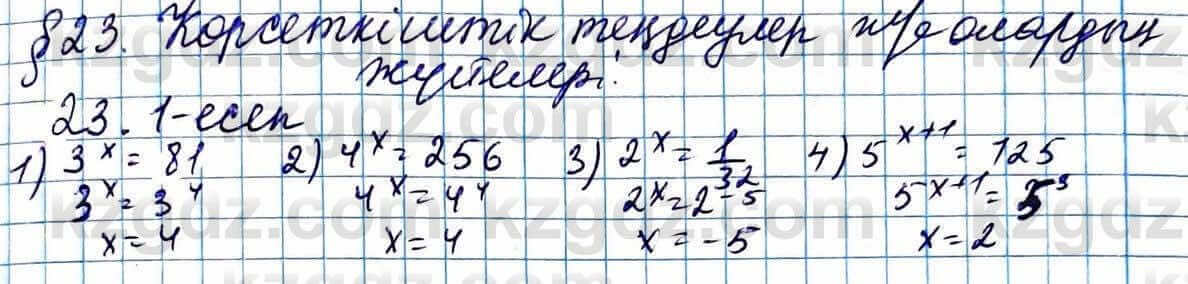 §23. Көрсеткіштік теңдеулер және олардың
жүйелері.
23.1-есеп
1) 3^x = 81 2) 4^x = 256 3) 2^x = 1/32 4) 5^{x+1} = 125
3^x = 3^4 4^x = 4^4 2^x = 2^{-5} 5^{x+1} = 5^3
x = 4 x = 4 x = -5 x = 2